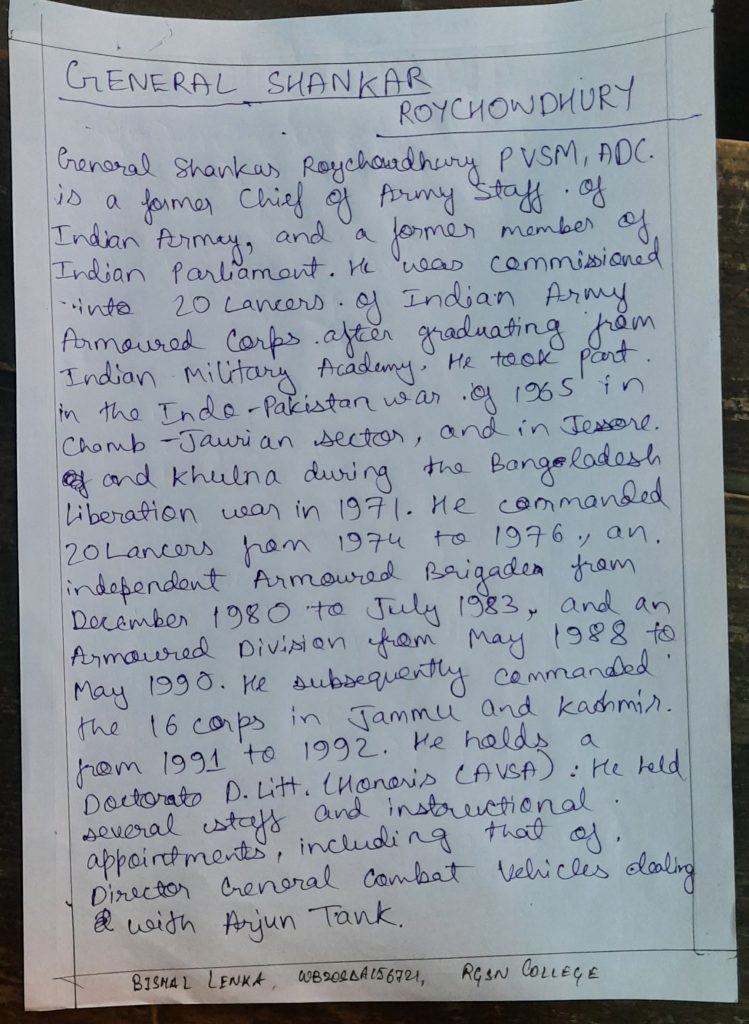 GENERAL SHANKAR
ROYCHOWDHURY
General Shankar Roychowdhury PVSM, ADC.
is a former Chief of Army Staff of
Indian Army, and a former member of
Indian Parliament. He was commissioned
into 20 Lancers of Indian Army
Armoured Corps after graduating from
Indian Military Academy. He took part
in the Indo-Pakistan war of 1965 in
Chamb-Jaurian sector, and in Jessore.
and Khulna during the Bangeladesh
Liberation war in 1971. He commanded
20 Lancers from 1974 to 1976, an
independent Armoured Brigade from
December 1980 to July 1983, and an
Armoured Division from May 1988 to
May 1990. He subsequently commanded
the 16 corps in Jammu and Kashmir.
from 1991 to 1992. He holds a
Doctorato D. Litt. (Honoris CAVSA). He held
several staff and instructional
appointments, including that of
Director General Combat Vehicles dealing
with Arjun Tank.
LENKA, RGSN COLLEGE